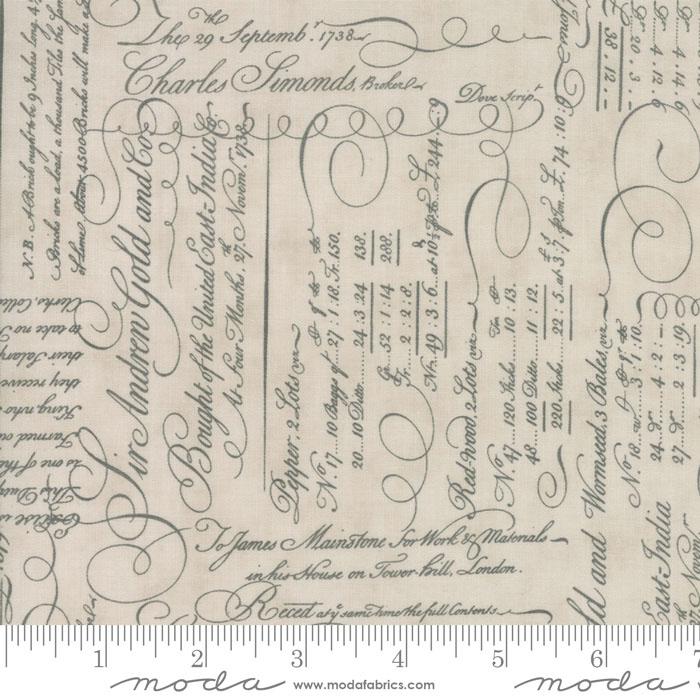 The 29th Septembr. 1738
Charles Simonds, Broker
Dove Script
N.B. A Brick ought to be 9 Inches long, 4
Bricks are a load, a thousand Tiles the
of Lime. About 4500 Bricks will make
Sir Andrew Gold and Co
Bought of the United East-India Co
At Four Months, 27th Novemr. 1738
Pepper, 2 Lots viz
No. 17 .... 10 Baggs qt .... 27 : 1 . 18 . Fr. 150.
20 .. 10 Ditto .... 24 : 3 . 24 138.
52 : 1 : 14 288.
2 : 2 : 8.
Nt. 49 : 3 : 6. at 10½ p lb. £ 244
Red-wood, 2 Lots viz
No. 47 .... 120 Sticks .... 10 : 13.
48 .... 100 Ditto .... 11 : 12.
220 Sticks. 22 : 5. at 3 £ 74 : 10 : 0
ld and Wormseed, 3 Bales, viz
No. 18 .... 3 : 1 : 10.
24 .... 4 : 2 : -
27 .... 2 : 3 : 19.
38 . 12 . -
Gr. 20 . 3 .
Gr. 4 . 12 . 6
Gr. 4 . 14 . 6
East-India
Clerks, Colle
to take no
their Salary
they receive
King who
Farmed ou
is one of the
This Duty
To James Mainstone For Work & Materials
in his House on Tower-hill, London.
Reced at ye same time the full Contents
1 2 3 4 5 6 7
moda www.modafabrics.com moda